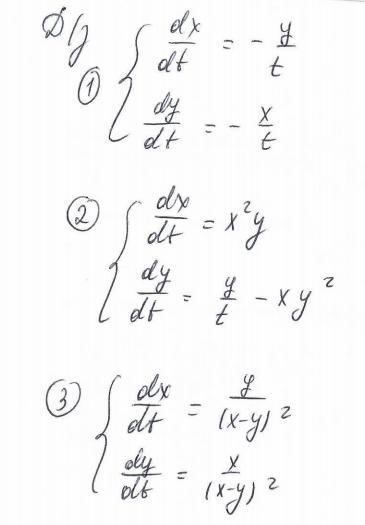 Д/з
① { dx/dt = - y/t
dy/dt = - x/t
② { dx/dt = x²y
dy/dt = y/t - xy²
③ { dx/dt = y/(x-y)²
dy/dt = x/(x-y)²